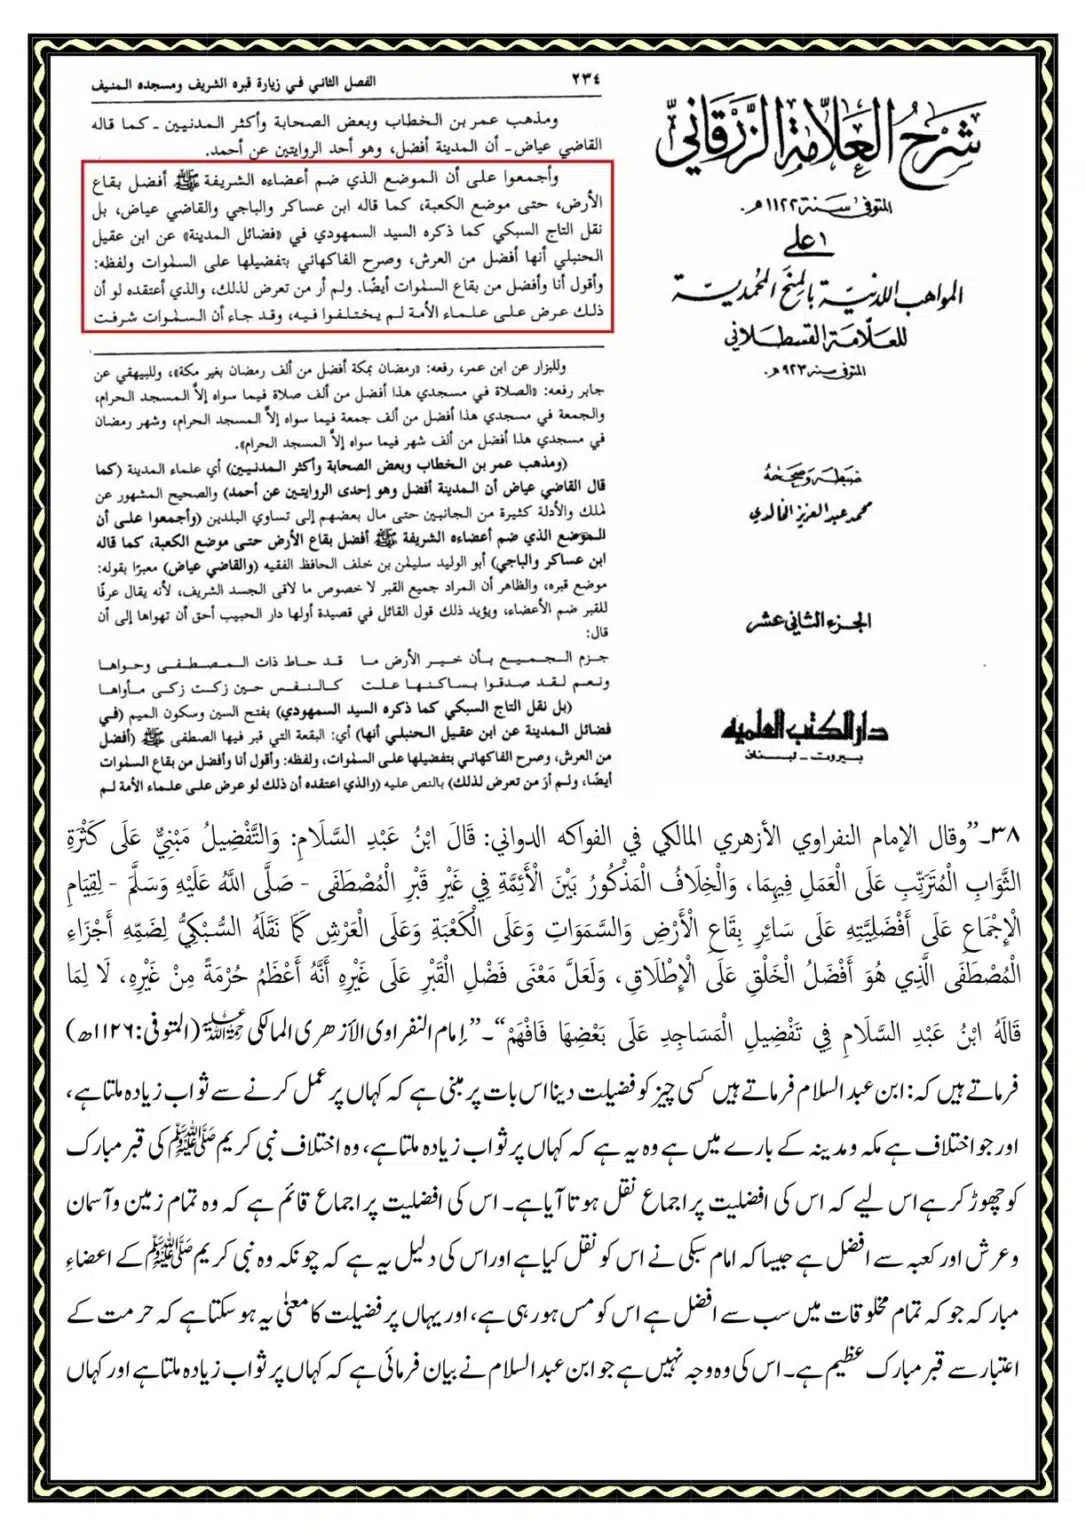 ٢٣٤ الفصل الثاني في زيارة قبره الشريف ومسجده المنيف
ومذهب عمر بن الخطاب وبعض الصحابة وأكثر المدنيين - كما قاله
القاضي عياض - أن المدينة أفضل، وهو أحد الروايتين عن أحمد.
وأجمعوا على أن الموضع الذي ضم أعضاءه الشريفة ﷺ أفضل بقاع
الأرض، حتى موضع الكعبة، كما قاله ابن عساكر والباجي والقاضي عياض، بل
نقل التاج السبكي كما ذكره السيد السمهودي في «فضائل المدينة» عن ابن عقيل
الحنبلي أنها أفضل من العرش، وصرح الفاكهاني بتفضيلها على السلموات ولفظه:
وأقول أنا وأفضل من بقاع السلموات أيضًا. ولم أر من تعرض لذلك، والذي أعتقده لو أن
ذلك عرض على علماء الأمة لم يختلفوا فيه، وقد جاء أن السلموات شرفت
وللبزار عن ابن عمر، رفعه: «رمضان بمكة أفضل من ألف رمضان بغير مكة»، وللبيهقي عن
جابر رفعه: «الصلاة في مسجدي هذا أفضل من ألف صلاة فيما سواه إلاَّ المسجد الحرام،
والجمعة في مسجدي هذا أفضل من ألف جمعة فيما سواه إلاَّ المسجد الحرام، وشهر رمضان
في مسجدي هذا أفضل من ألف شهر فيما سواه إلاَّ المسجد الحرام».
(ومذهب عمر بن الخطاب وبعض الصحابة وأكثر المدنيين) أي علماء المدينة (كما
قال القاضي عياض أن المدينة أفضل وهو إحدى الروايتين عن أحمد) والصحيح المشهور عن
لملك والأدلة كثيرة من الجانبين حتى مال بعضهم إلى تساوي البلدين (وأجمعوا على أن
الموضع الذي ضم أعضاءه الشريفة ﷺ أفضل بقاع الأرض حتى موضع الكعبة، كما قاله
ابن عساكر والباجي) أبو الوليد سليمٰن بن خلف الحافظ الفقيه (والقاضي عياض) معبرًا بقوله:
موضع قبره، والظاهر أن المراد جميع القبر لا خصوص ما لاقى الجسد الشريف، لأنه يقال عرفًا
للقبر ضم الأعضاء، ويؤيد ذلك قول القائل في قصيدة أولها دار الحبيب أحق أن تهواها إلى أن
قال:
جزم الجميع بأن خير الأرض ما قد حاط ذات المصطفى وحواها
ونعم لقد صدقوا بساكنها علت كالنفس حين زكت زكى مأواها
(بل نقل التاج السبكي كما ذكره السيد السمهودي) بفتح السين وسكون الميم (في
فضائل المدينة عن ابن عقيل الحنبلي أنها) أي: البقعة التي قبر فيها الصطفى ﷺ (أفضل
من العرش، وصرح الفاكهاني بتفضيلها على السلموات، ولفظه: وأقول أنا وأفضل من بقاع السلموات
أيضًا، ولم أرَ من تعرض لذلك) بالنص عليه (والذي اعتقده أن ذلك لو عرض على علماء الأمة لم
شَرحُ العلّامة الزّرقانيّ
المتوفى سنة ١١٢٢هـ.
على
المواهب اللدنيّة بالمنح المحمديّة
للعلّامة القسطلاني
المتوفى سنة ٩٢٣هـ.
ضبطه وصححه
محمد عبد العزيز الخالدي
الجزء الثاني عشر
دار الكتب العلمية
بيروت - لبنان
٣٨۔”وقال الإمام النفراوي الأزهري المالكي في الفواكه الدواني: قَالَ ابْنُ عَبْدِ السَّلَامِ: وَالتَّفْضِيلُ مَبْنِيٌّ عَلَى كَثْرَةِ
الثَّوَابِ الْمُتَرَتِّبِ عَلَى الْعَمَلِ فِيهِمَا، وَالْخِلَافُ الْمَذْكُورُ بَيْنَ الْأَئِمَّةِ فِي غَيْرِ قَبْرِ الْمُصْطَفَى - صَلَّى اللَّهُ عَلَيْهِ وَسَلَّمَ - لِقِيَامِ
الْإِجْمَاعِ عَلَى أَفْضَلِيَّتِهِ عَلَى سَائِرِ بِقَاعِ الْأَرْضِ وَالسَّمَوَاتِ وَعَلَى الْكَعْبَةِ وَعَلَى الْعَرْشِ كَمَا نَقَلَهُ السُّبْكِيُّ لِضَمِّهِ أَجْزَاءِ
الْمُصْطَفَى الَّذِي هُوَ أَفْضَلُ الْخَلْقِ عَلَى الْإِطْلَاقِ، وَلَعَلَّ مَعْنَى فَضْلِ الْقَبْرِ عَلَى غَيْرِهِ أَنَّهُ أَعْظَمُ حُرْمَةً مِنْ غَيْرِهِ، لَا لِمَا
قَالَهُ ابْنُ عَبْدِ السَّلَامِ فِي تَفْضِيلِ الْمَسَاجِدِ عَلَى بَعْضِهَا فَافْهَمْ“۔”امام النفراوی الأزهری المالکی رحمۃ اللہ علیہ (المتوفی:١١٢٦ھ)
فرماتے ہیں کہ: ابن عبد السلام فرماتے ہیں کسی چیز کو فضیلت دینا اس بات پر مبنی ہے کہ کہاں پر عمل کرنے سے ثواب زیادہ ملتا ہے،
اور جو اختلاف ہے مکہ و مدینہ کے بارے میں ہے وہ یہ ہے کہ کہاں پر ثواب زیادہ ملتا ہے، وہ اختلاف نبی کریم ﷺ کی قبر مبارک
کو چھوڑ کر ہے اس لیے کہ اس کی افضلیت پر اجماع نقل ہوتا آیا ہے۔ اس کی افضلیت پر اجماع قائم ہے کہ وہ تمام زمین و آسمان
و عرش اور کعبہ سے افضل ہے جیسا کہ امام سبکی نے اس کو نقل کیا ہے اور اس کی دلیل یہ ہے کہ چونکہ وہ نبی کریم ﷺ کے اعضاءِ
مبارکہ جو کہ تمام مخلوقات میں سب سے افضل ہے اس کو مس ہو رہی ہے، اور یہاں پر فضیلت کا معنیٰ یہ ہو سکتا ہے کہ حرمت کے
اعتبار سے قبر مبارک عظیم ہے۔ اس کی وہ وجہ نہیں ہے جو ابن عبد السلام نے بیان فرمائی ہے کہ کہاں پر ثواب زیادہ ملتا ہے اور کہاں